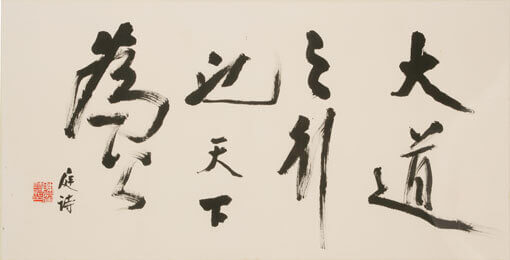 大道
之行
也天下
為公
庭诗